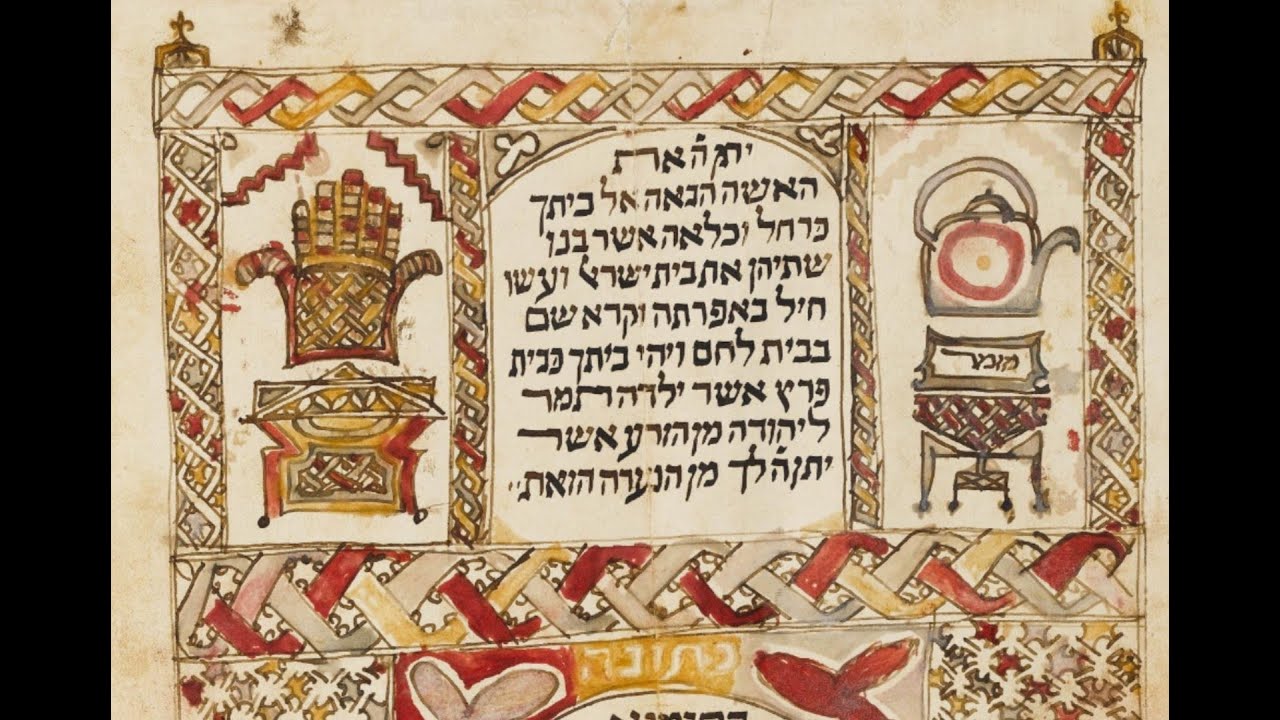 יתן ה' את
האשה הבאה אל ביתך
כרחל וכלאה אשר בנו
שתיהן את בית ישראל ועשו
חיל באפרתה וקרא שם
בבית לחם ויהי ביתך כבית
פרץ אשר ילדה תמר
ליהודה מן הזרע אשר
יתן ה' לך מן הנערה הזאת
כתובה